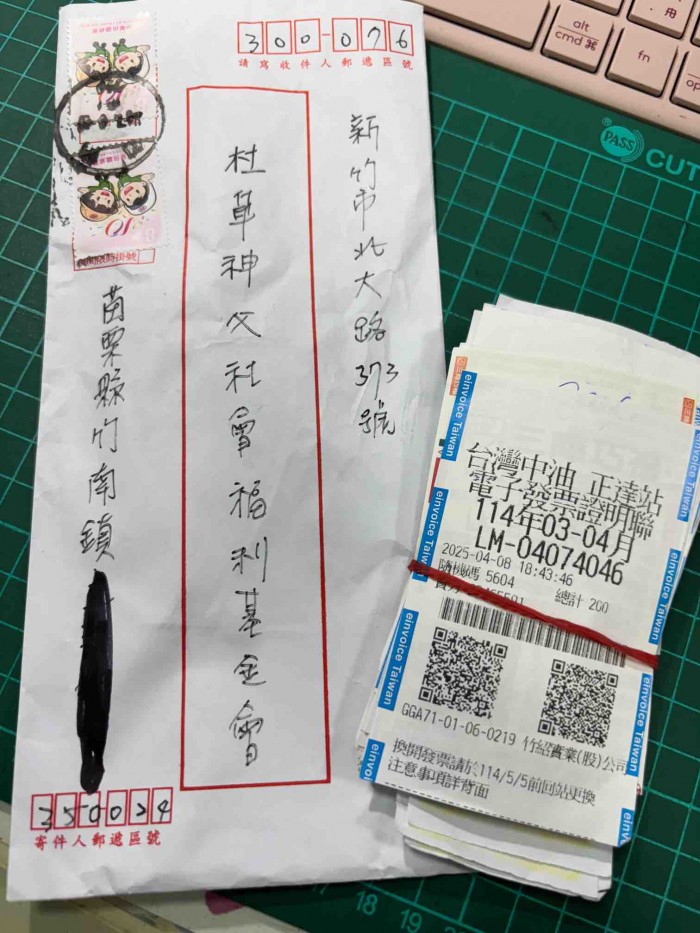 300-076
請寫收件人郵遞區號
新竹市北大路373號
杜華神父社會福利基金會
苗栗縣竹南鎮
350024
寄件人郵遞區號
10
alt
cmd ⌘
fn
PASS
CUT
einvoice Taiwan
einvoice Taiwan
einvoice Taiwan
einvoice Taiwan
einvoice Taiwan
einvoice Taiwan
台灣中油 正達站
電子發票證明聯
114年03-04月
LM-04074046
2025-04-08 18:43:46
隨機碼 5604 總計 200
GGA71-01-06-0219 竹紹實業(股)公司
換開發票請於114/5/5前回站更換
注意事項詳背面
17 18 19